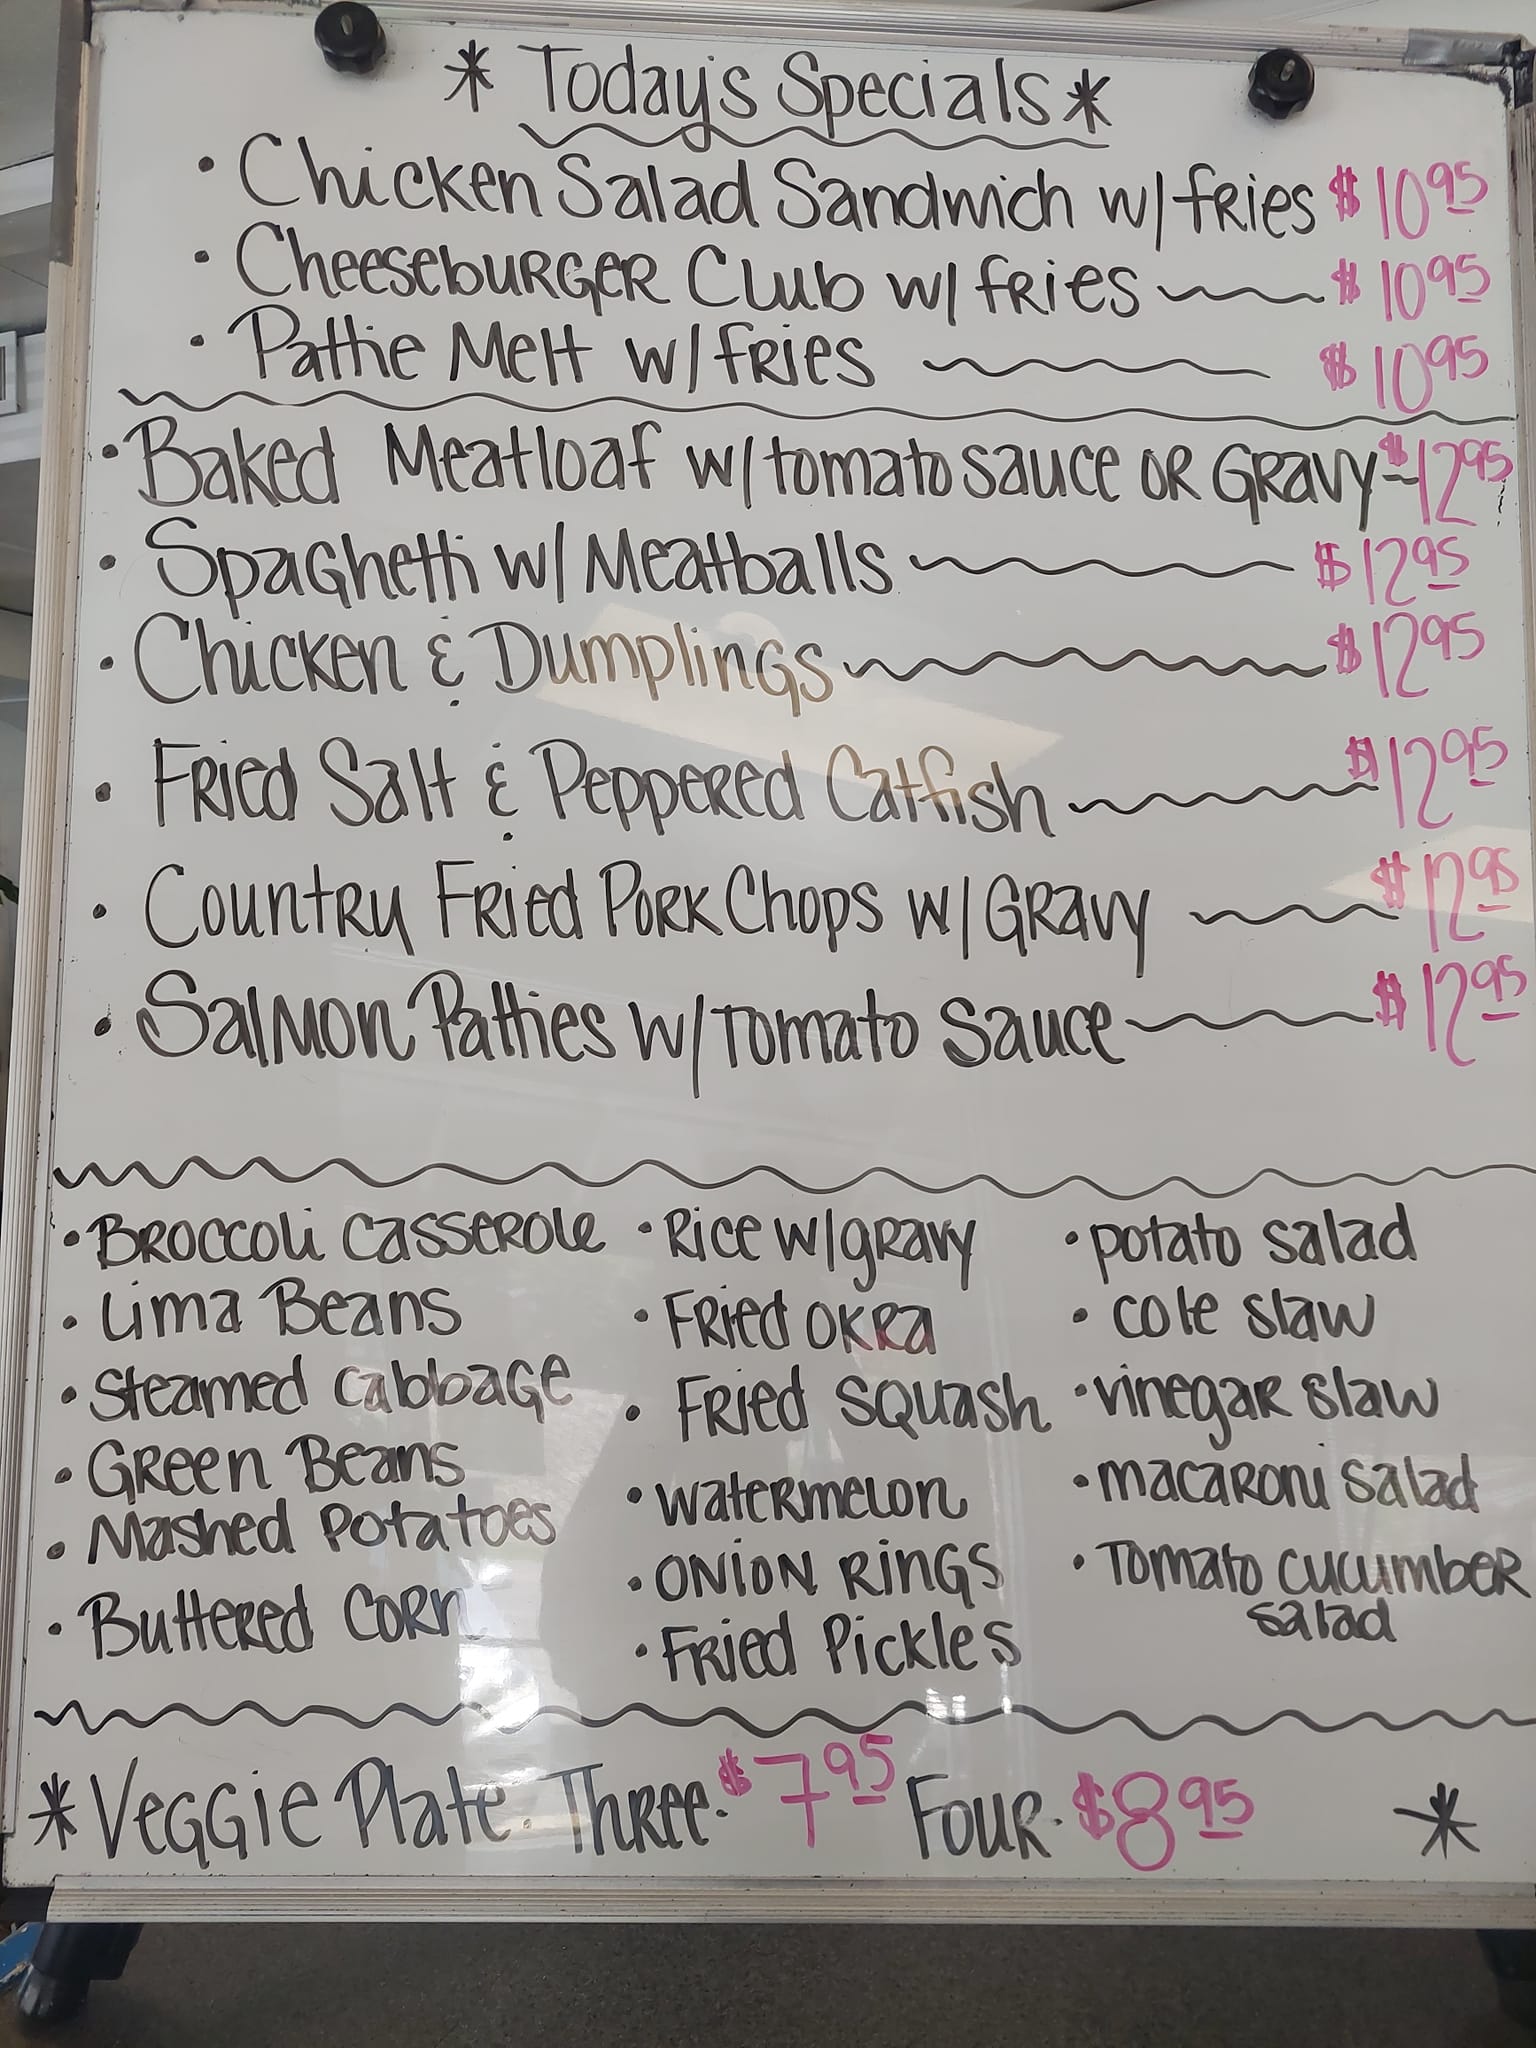 * Today's Specials *
• Chicken Salad Sandwich w/ fries $10.95
• Cheeseburger Club w/ fries $10.95
• Pattie Melt w/ fries $10.95
• Baked Meatloaf w/ tomato sauce or Gravy $12.95
• Spaghetti w/ Meatballs $12.95
• Chicken & Dumplings $12.95
• Fried Salt & Peppered Catfish $12.95
• Country Fried Pork Chops w/ Gravy $12.95
• Salmon Patties w/ Tomato Sauce $12.95
• Broccoli Casserole
• Lima Beans
• Steamed Cabbage
• Green Beans
• Mashed Potatoes
• Buttered Corn
• Rice w/ gravy
• Fried Okra
• Fried Squash
• Watermelon
• Onion Rings
• Fried Pickles
• potato salad
• cole slaw
• vinegar slaw
• macaroni salad
• Tomato cucumber
salad
* Veggie Plate. Three. $7.95 Four. $8.95 *